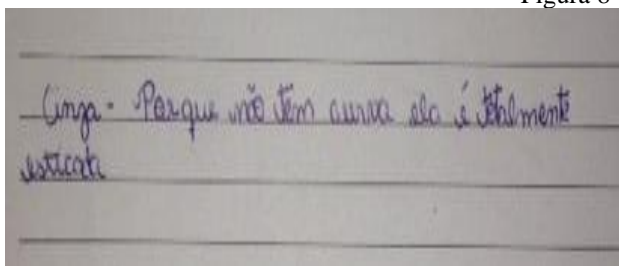 Figura 8
Cinza - Porque não têm curva ela é totalmente
esticata